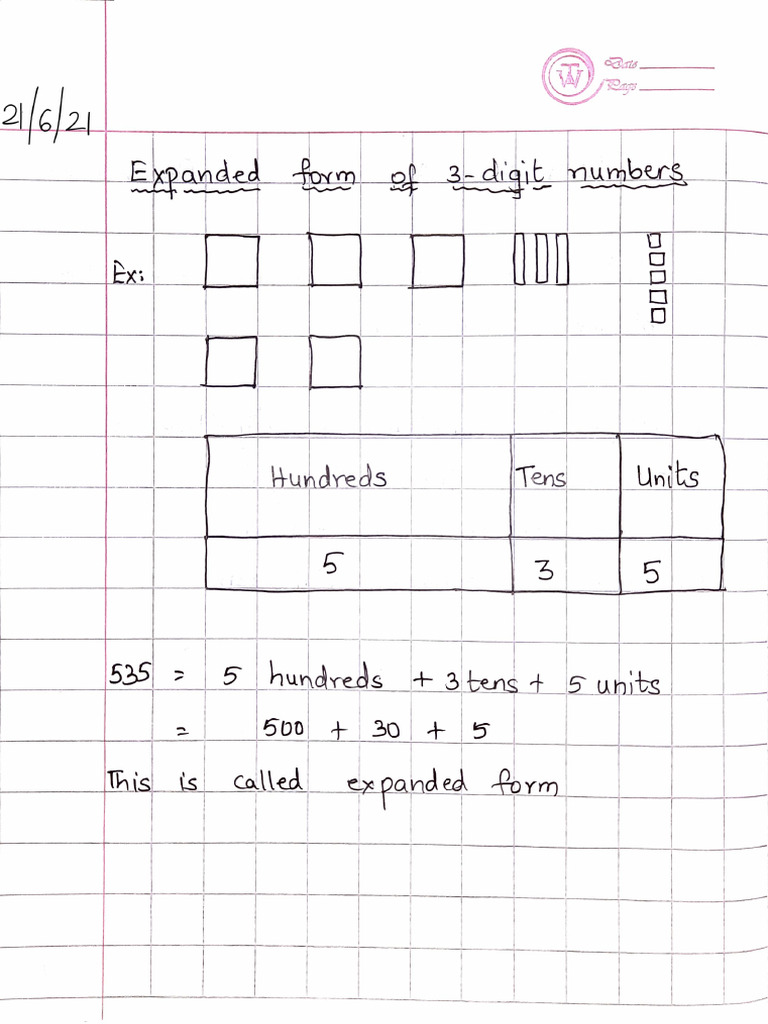 Date
Page
21/6/21
Expanded form of 3-digit numbers
Ex:
Hundreds Tens Units
5 3 5
535 = 5 hundreds + 3 tens + 5 units
= 500 + 30 + 5
This is called expanded form